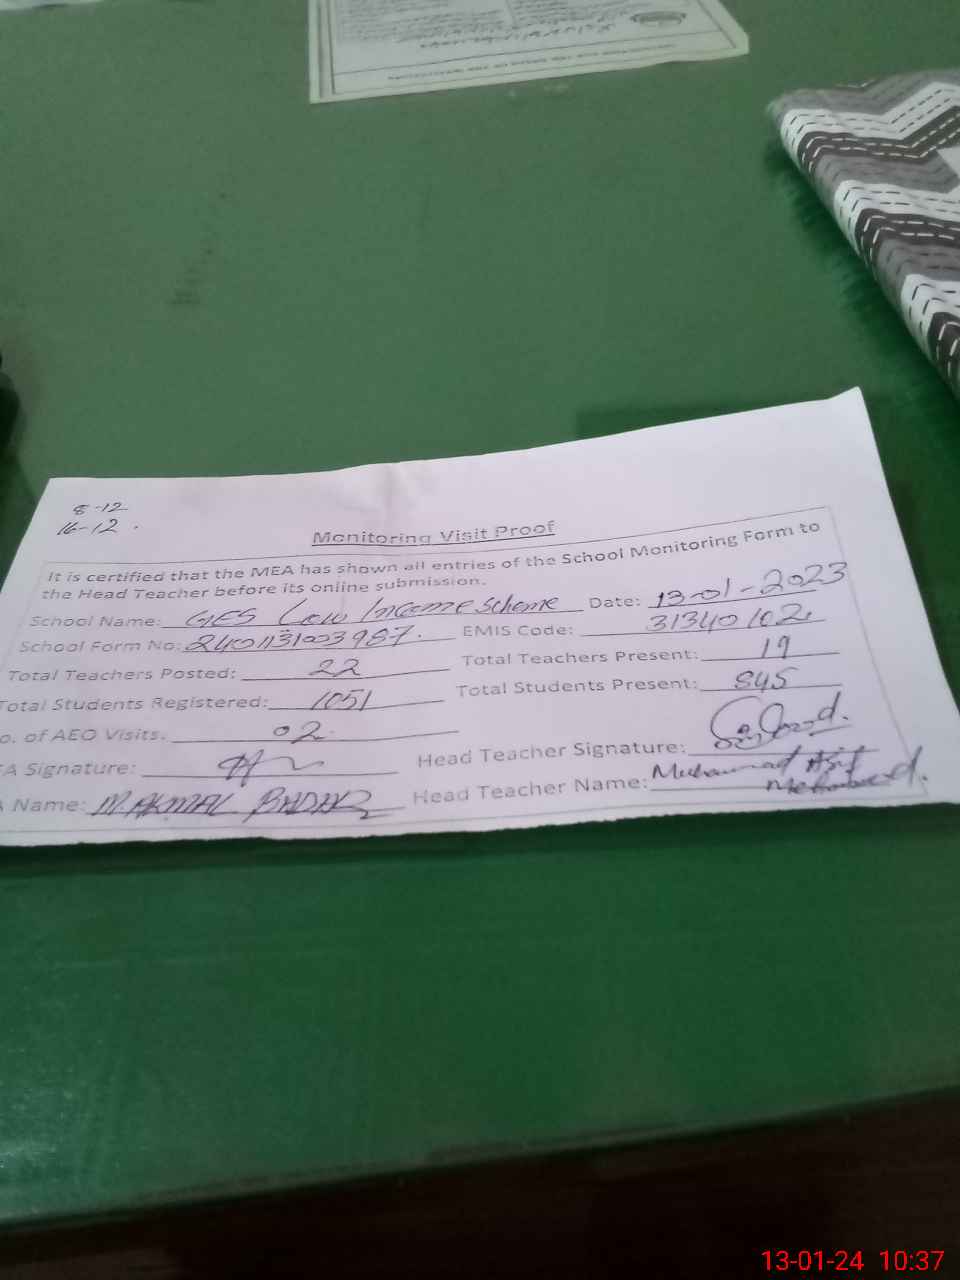 8-12
16-12.
Monitoring Visit Proof
It is certified that the MEA has shown all entries of the School Monitoring Form to
the Head Teacher before its online submission.
School Name: GES Low Income Scheme Date: 13-01-2023
School Form No: 2401131003987. EMIS Code: 31340102.
Total Teachers Posted: 22 Total Teachers Present: 19
Total Students Registered: 1051 Total Students Present: 845
o. of AEO Visits. 02
A Signature: Head Teacher Signature:
A Name: M. AKMAL BADAR Head Teacher Name: Muhammad Asif
Mehmood.
13-01-24 10:37